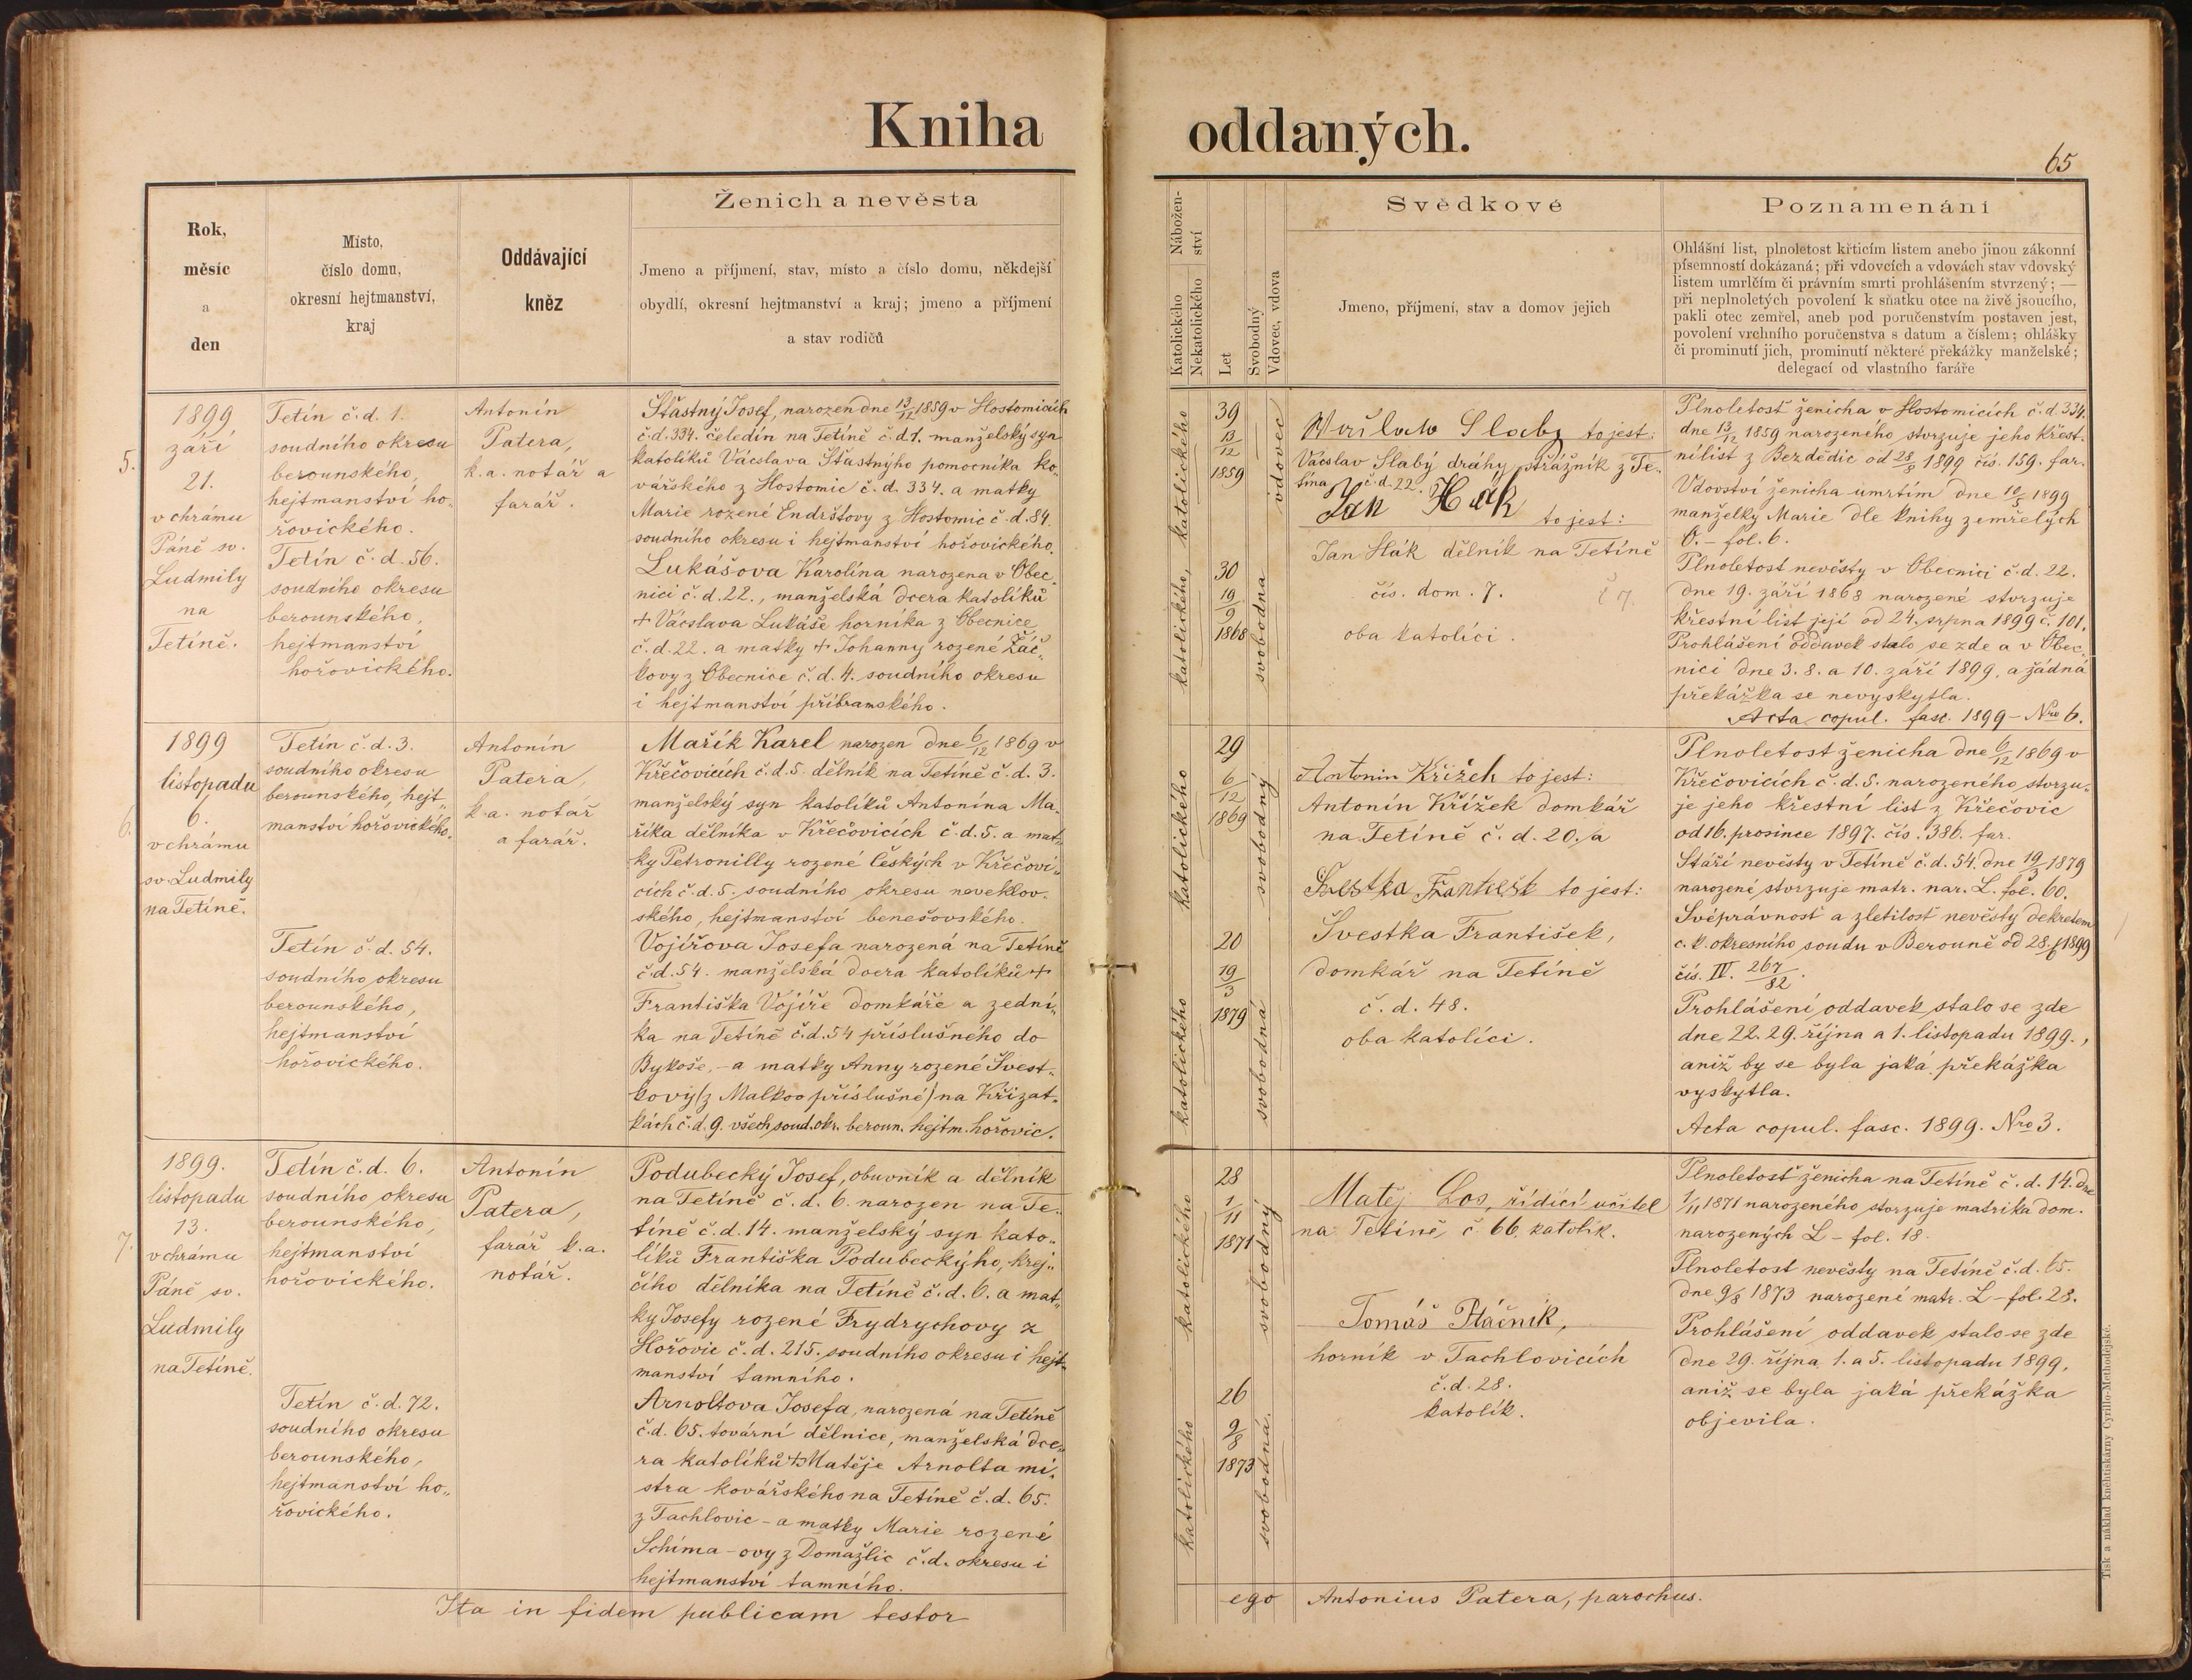 Kniha oddaných.
65
Rok,
měsíc
a
den
Místo,
číslo domu,
okresní hejtmanství,
kraj
Oddávající
kněz
Ženich a nevěsta
Jmeno a příjmení, stav, místo a číslo domu, někdejší
obydlí, okresní hejtmanství a kraj; jmeno a příjmení
a stav rodičů
Nábožen-
ství
Katolického
Nekatolického
Let
Svobodný
Vdovec, vdova
Svědkové
Jmeno, příjmení, stav a domov jejich
Poznamenání
Ohlášní list, plnoletost křticím listem anebo jinou zákonní
písemností dokázaná; při vdovcích a vdovách stav vdovský
listem umrlčím či právním smrti prohlášením stvrzený; —
při neplnoletých povolení k sňatku otce na živě jsoucího,
pakli otec zemřel, aneb pod poručenstvím postaven jest,
povolení vrchního poručenstva s datum a číslem; ohlášky
či prominutí jich, prominutí některé překážky manželské;
delegací od vlastního faráře
5.
1899,
září
21.
v chrámu
Páně sv.
Ludmily
na
Tetíně.
Tetín č.d. 1.
soudního okresu
berounského,
hejtmanství ho-
řovického.
Tetín č.d. 56.
soudního okresu
berounského,
hejtmanství
hořovického.
Antonín
Patera,
k.a. notář a
farář.
Šťastný Josef, narozen dne 13/12 1859 v Hostomicích
č.d. 334. čeledín na Tetíně č.d. 1. manželský syn
katolíků Vácslava Šťastnýho pomocníka ko-
vářského z Hostomic č.d. 334. a matky
Marie rozené Endrštovy z Hostomic č.d. 84.
soudního okresu i hejtmanství hořovického.
Lukášova Karolína narozena v Obec-
nici č.d. 22., manželská dcera katolíků
+ Vácslava Lukáše horníka z Obecnice
č.d. 22. a matky + Johanny rozené Žáč-
kovy z Obecnice č.d. 4. soudního okresu
i hejtmanství příbramského.
katolického
39
13/12
1859
vdovec
katolického,
30
19/9
1868
svobodna
Slaby to jest:
Vácslav Slabý dráhy strážník z Te-
tína č.d. 22.
Jan Hák
to jest:
Jan Hák dělník na Tetíně
čís. dom. 7.
č 7.
oba katolíci.
Plnoletost ženicha v Hostomicích č.d. 334.
dne 13/12 1859 narozeného stvrzuje jeho křest-
ní list z Bezdědic od 28/8 1899 čís. 159. far.
Vdovství ženicha umrtím dne 10/5 1899
manželky Marie dle knihy zemřelých
O. – fol. 6.
Plnoletost nevěsty v Obecnici č.d. 22.
dne 19. září 1868 narozené stvrzuje
křestní list její od 24. srpna 1899 č. 101.
Prohlášení oddavek stalo se zde a v Obec-
nici dne 3. 8. a 10. září 1899, a žádná
překážka se nevyskytla.
Acta copul. fasc. 1899 – Nro 6.
6.
1899
listopadu
6.
v chrámu
sv. Ludmily
na Tetíně.
Tetín č.d. 3.
soudního okresu
berounského, hejt-
manství hořovického.
Tetín č.d. 54.
soudního okresu
berounského,
hejtmanství
hořovického.
Antonín
Patera,
k.a. notář
a farář.
Mařík Karel narozen dne 6/12 1869 v
Křečovicích č.d. 5. dělník na Tetíně č.d. 3.
manželský syn katolíků Antonína Ma-
říka dělníka v Křečovicích č.d. 5. a mat-
ky Petronilly rozené Českých v Křečovi-
cích č.d. 5. soudního okresu neveklov-
ského, hejtmanství benešovského.
Vojířova Josefa narozená na Tetíně
č.d. 54. manželská dcera katolíků +
Františka Vojíře domkáře a zední-
ka na Tetíně č.d. 54 příslušného do
Bykoše, – a matky Anny rozené Švest-
kovy (z Malkov příslušné) na Křižat-
kách č.d. 9. všech soud. okr. beroun. hejtm. hořovic.
katolického
29
6/12
1869
svobodný
katolického
20
19/3
1879
svobodná
Antonin Křížek to jest:
Antonín Křížek domkář
na Tetíně č.d. 20. a
Švestka František to jest:
Švestka František,
domkář na Tetíně
č.d. 48.
oba katolíci.
Plnoletost ženicha dne 6/12 1869 v
Křečovicích č.d. 5. narozeného stvrzu-
je jeho křestní list z Křečovic
od 16. prosince 1897. čís. 386. far.
Stáří nevěsty v Tetíně č.d. 54. dne 19/3 1879
narozené stvrzuje matr. nar. L. fol. 60.
Svéprávnost a zletilost nevěsty dekretem
c.k. okresního soudu v Berouně od 28. 1899
čís. IV. 267/82.
Prohlášení oddavek stalo se zde
dne 22. 29. října a 1. listopadu 1899.,
aniž by se byla jaká překážka
vyskytla.
Acta copul. fasc. 1899. Nro 3.
7.
1899.
listopadu
13.
v chrámu
Páně sv.
Ludmily
na Tetíně.
Tetín č.d. 6.
soudního okresu
berounského,
hejtmanství
hořovického.
Tetín č.d. 72.
soudního okresu
berounského,
hejtmanství ho-
řovického.
Antonín
Patera,
farář k.a.
notář.
Podubecký Josef, obuvník a dělník
na Tetíně č.d. 6. narozen na Te-
tíně č.d. 14. manželský syn kato-
líků Františka Podubeckýho, krej-
čího dělníka na Tetíně č.d. 6. a mat-
ky Josefy rozené Frydrychovy z
Hořovic č.d. 215. soudního okresu i hejt-
manství tamního.
Arnoltova Josefa, narozená na Tetíně
č.d. 65. tovární dělnice, manželská dce-
ra katolíků + Matěje Arnolta mi-
stra kovářského na Tetíně č.d. 65.
z Tachlovic – a matky Marie rozené
Schíma-ovy z Domažlic č.d. okresu i
hejtmanství tamního.
katolického
28
1/11
1871
svobodný
katolického
26
9/8
1873
svobodná.
Matěj Los, řídící učitel
na Tetíně č 66. katolík.
Tomáš Ptáčník,
horník v Tachlovicích
č.d. 28.
katolík.
Plnoletost ženicha na Tetíně č.d. 14. dne
1/11 1871 narozeného stvrzuje matrika dom.
narozených L – fol. 18.
Plnoletost nevěsty na Tetíně č.d. 65.
dne 9/8 1873 narozené matr. L – fol. 28.
Prohlášení oddavek stalo se zde
dne 29. října, 1. a 5. listopadu 1899,
aniž se byla jaká překážka
objevila.
Ita in fidem publicam testor ego Antonius Patera, parochus.
Tisk a náklad kněhtiskárny Cyrillo-Methodějské.